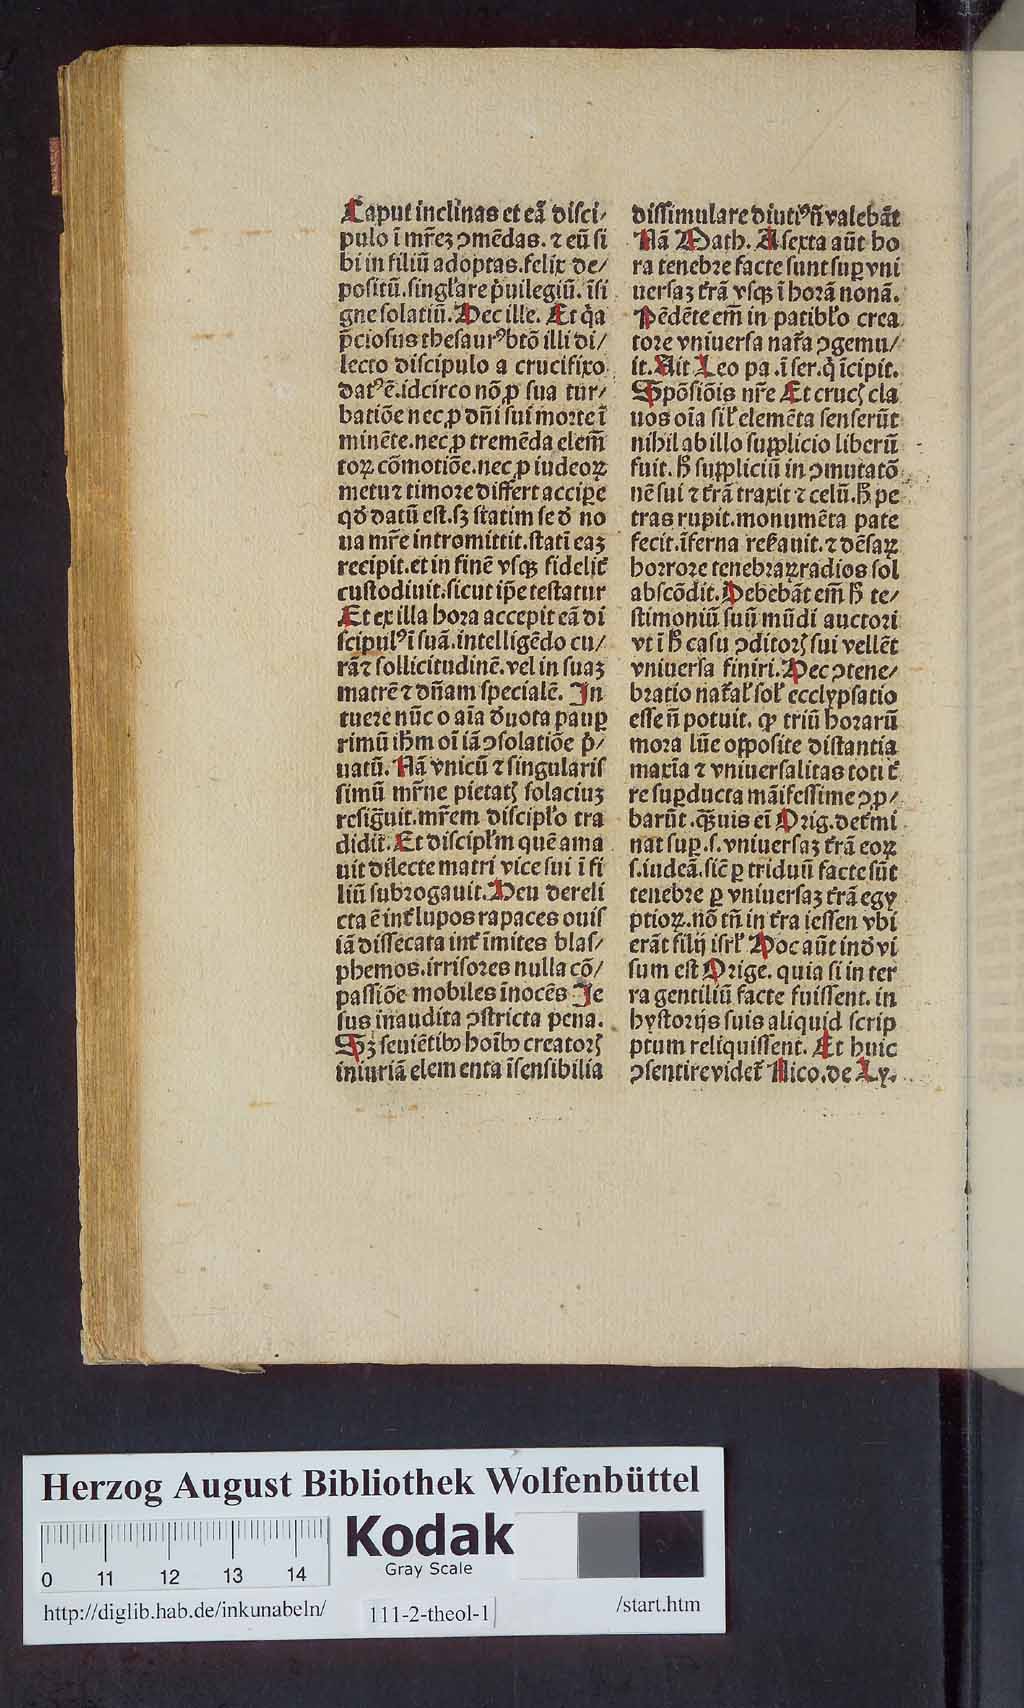 Caput inclinas et eā disci⸗
pulo ī mr̄eꝫ ꝯmēdas. ⁊ eū si
bi in filiū adoptas. felix de⸗
positū. singl'are p̓uilegiū. īsi
gne solatiū. Hec ille. Et q̓a
p̄ciosus thesaurꝰ btō illi di⸗
lecto discipulo a crucifixo
datꝰ ē. idcirco nō ꝓ sua tur⸗
batiōe nec ꝓ dn̄i sui morte ī
minēte. nec ꝓ tremēda elem̄
toꝝ cōmotiōe. nec ꝓ iudeoꝝ
metu ⁊ timore differt acciꝑe
qd̓ datū est. sꝫ statim se d̓ no
ua mr̄e intromittit. statī eaꝫ
recipit. et in finē vsqꝫ fidelit̓
custodiuit. sicut ip̄e testatur
Et ex illa hora accepit eā di
scipulꝰ ī suā. intelligēdo cu⸗
rā ⁊ sollicitudinē. vel in suaꝫ
matrē ⁊ dn̄am specialē. In
tuere nūc o aīa d̓uota pauꝑ
rimū ih̄m oī iā ꝯsolatiōe p̓⸗
uatū. Nā vnicū ⁊ singularis
simū mr̄ne pietatꝭ solaciuꝫ
resig̅uit. mr̄em discipl'o tra
didit. Et discipl'm quē ama
uit dilecte matri vice sui ī fi
liū subrogauit. Heu dereli
cta ē int̓ lupos rapaces ouis
iā dissecata int̓ īmites blas⸗
phemos. irrisores nulla cō⸗
passiōe mobiles īnocēs Je
sus inaudita ꝯstricta pena.
Sꝫ seuiētibꝰ hoībꝰ creatorꝭ
iniuriā elementa īsensibilia
dissimulare diutiꝰ n̄ valebāt
Nā Math. A sexta aūt ho
ra tenebre facte sunt suꝑ vni
uersaꝫ t̓rā vsqꝫ ī horā nonā.
Pēdēte em̄ in patibl'o crea
tore vniuersa nat̓a ꝯgemu⸗
it. Ait Leo pa. ī ser. q̓ īcipit.
Spōsiōis nr̄e Et crucꝭ cla
uos oīa sil' elemēta senserūt
nihil ab illo supplicio liberū
fuit. h̄ suppliciū in ꝯmutatō
nē sui ⁊ t̓rā traxit ⁊ celū. h̄ pe
tras rupit. monumēta pate
fecit. īferna re͛auit. ⁊ dēsaꝝ
horrore tenebraꝝ radios sol
abscōdit. Debebāt em̄ h̄ te⸗
stimoniū suū mūdi auctori
vt ī h̄ casu ꝯditorꝭ sui vellēt
vniuersa finiri. Hec ꝯtene⸗
bratio nat̓al' sol' ecclypsatio
esse n̄ potuit. qꝛ triū horarū
mora lūe opposite distantia
maxīa ⁊ vniuersalitas toti t̓
re suꝑducta māifessime ꝯꝓ⸗
barūt. qꝫuis eī Orig. det̓mi
nat suꝑ .s. vniuersaꝫ t̓rā eoꝝ
s. iudeā. sīc ꝑ triduū facte sūt
tenebre ꝑ vniuersaꝫ t̓rā egy
ptioꝝ. nō tn̄ in t̓ra iessen vbi
erāt filij isrl' Hoc aūt ind̓ vi
sum est Orige. quia si in ter
ra gentiliū facte fuissent. in
hystorijs suis aliquid scrip
ptum reliquissent. Et huic
ꝯsentire videt̓ Nico. de Ly.
Herzog August Bibliothek Wolfenbüttel
Kodak
Gray Scale
0 11 12 13 14
http://diglib.hab.de/inkunabeln/ 111-2-theol-1 /start.htm